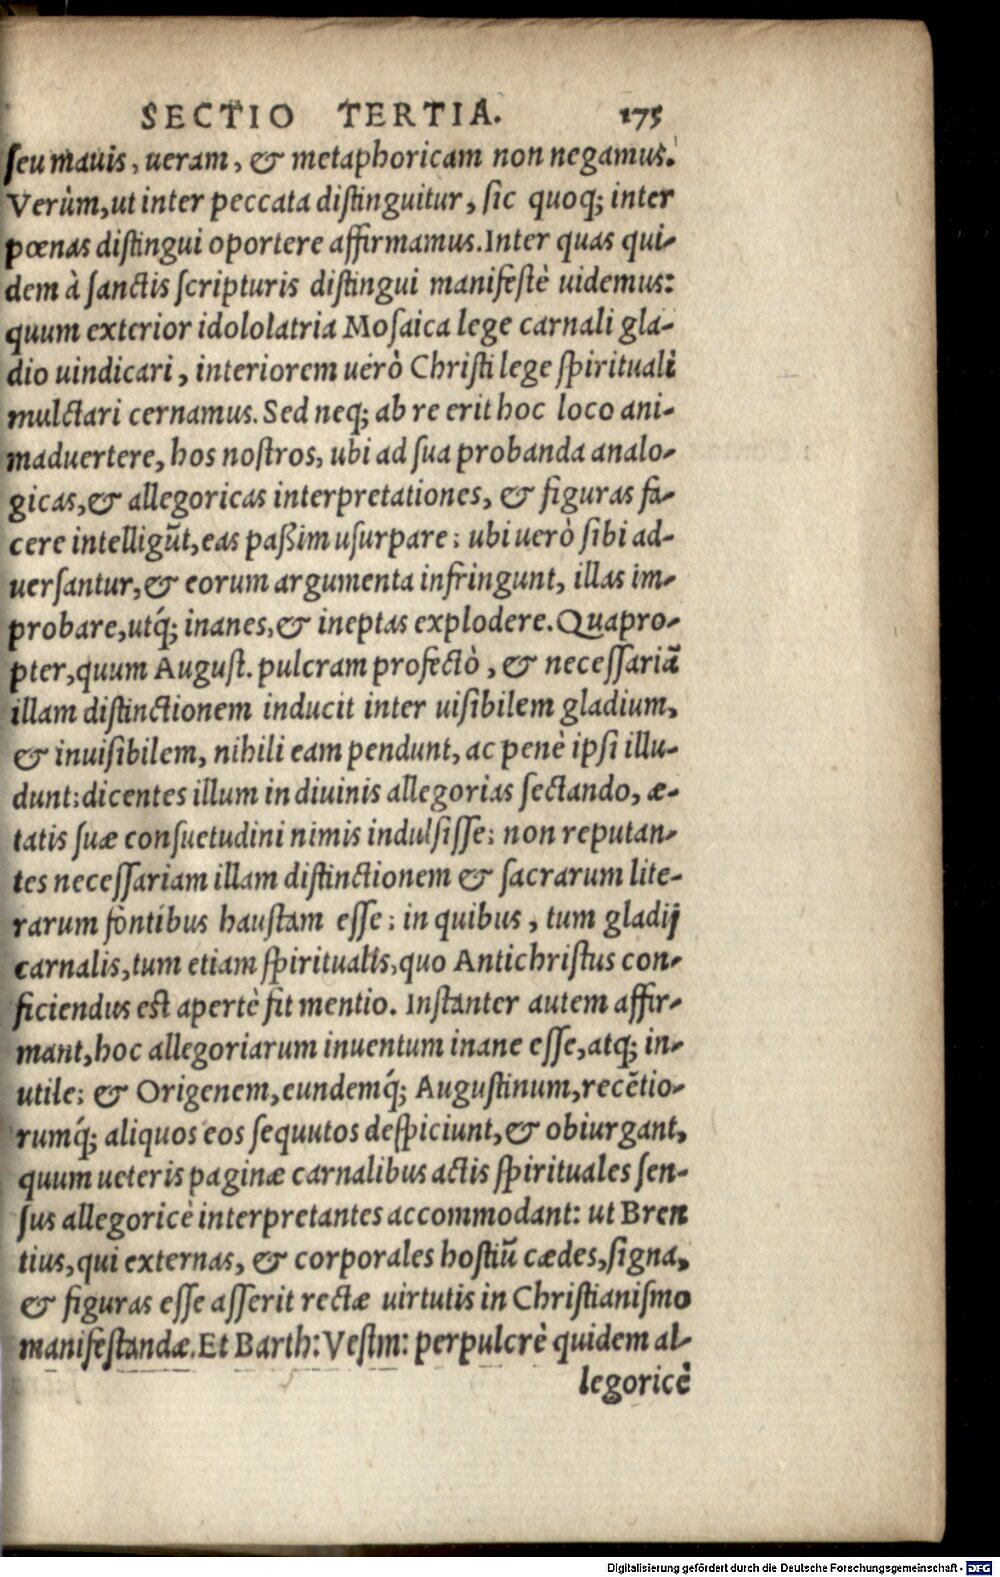 SECTIO TERTIA. 175
ſeu mauis, ueram, & metaphoricam non negamus.
Verùm, ut inter peccata diſtinguitur, ſic quoq; inter
pœnas diſtingui oportere affirmamus. Inter quas qui-
dem à ſanctis ſcripturis diſtingui manifeſtè uidemus:
quum exterior idololatria Moſaica lege carnali gla-
dio uindicari, interiorem uerò Chriſti lege ſpirituali
mulctari cernamus. Sed neq; ab re erit hoc loco ani-
maduertere, hos noſtros, ubi ad ſua probanda analo-
gicas, & allegoricas interpretationes, & figuras fa-
cere intelligūt, eas paßim uſurpare: ubi uerò ſibi ad-
uerſantur, & eorum argumenta infringunt, illas im-
probare, utq́; inanes, & ineptas explodere. Quapro-
pter, quum Auguſt. pulcram profectò, & neceſſariā
illam diſtinctionem inducit inter uiſibilem gladium,
& inuiſibilem, nihili eam pendunt, ac penè ipſi illu-
dunt: dicentes illum in diuinis allegorias ſectando, æ-
tatis ſuæ conſuetudini nimis indulſiſſe: non reputan-
tes neceſſariam illam diſtinctionem & ſacrarum lite-
rarum fontibus hauſtam eſſe: in quibus, tum gladij
carnalis, tum etiam ſpiritualis, quo Antichriſtus con-
ficiendus eſt apertè fit mentio. Inſtanter autem affir-
mant, hoc allegoriarum inuentum inane eſſe, atq; in-
utile: & Origenem, eundemq́; Auguſtinum, recētio-
rumq́; aliquos eos ſequutos deſpiciunt, & obiurgant,
quum ueteris paginæ carnalibus actis ſpirituales ſen-
ſus allegoricè interpretantes accommodant: ut Bren
tius, qui externas, & corporales hoſtiū cædes, ſigna,
& figuras eſſe aſſerit rectæ uirtutis in Chriſtianiſmo
manifeſtandæ. Et Barth: Veſtm: perpulcrè quidem al-
legoricè
Digitalisierung gefördert durch die Deutsche Forschungsgemeinschaft - DFG